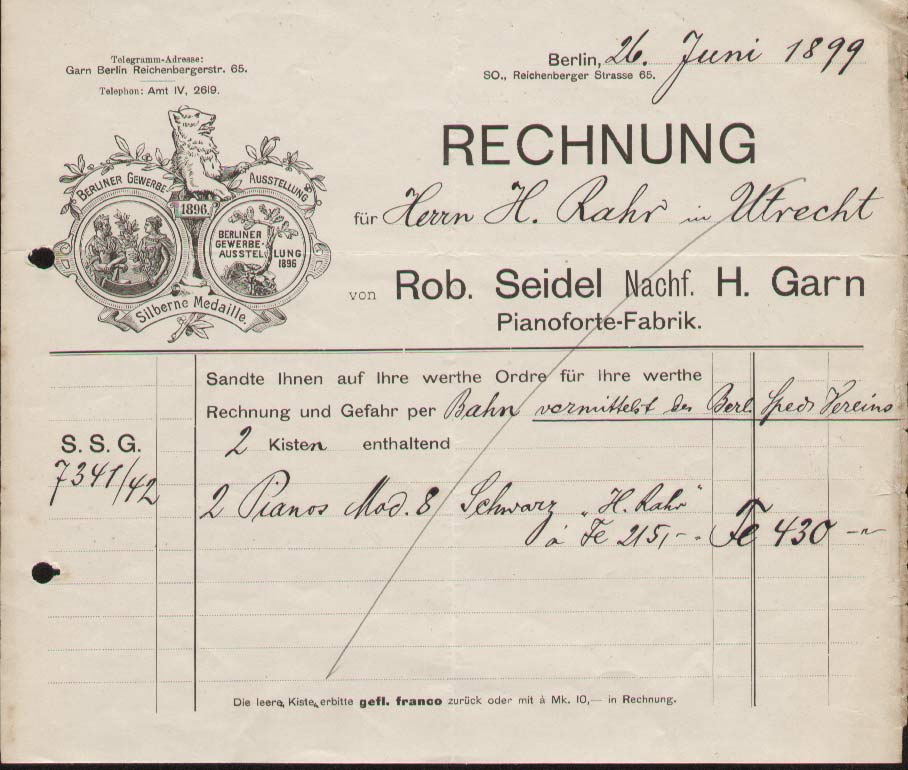 Telegramm-Adresse:
Garn Berlin Reichenbergerstr. 65.
Telephon: Amt IV, 2619.
Berlin, 26. Juni 1899
SO., Reichenberger Strasse 65.
BERLINER GEWERBE-AUSSTELLUNG
1896.
BERLINER
GEWERBE-
AUSSTELLUNG
1896
Silberne Medaille.
RECHNUNG
für Herrn H. Rahr in Utrecht
von Rob. Seidel Nachf. H. Garn
Pianoforte-Fabrik.
Sandte Ihnen auf Ihre werthe Ordre für Ihre werthe
Rechnung und Gefahr per Bahn vermittelst des Berl. Sped. Vereins
S. S. G. 2 Kisten enthaltend
7341/42
2 Pianos Mod. 8 Schwarz „H. Rahr"
à Fe 215,-- Fe 430 --
Die leere, Kiste, erbitte gefl. franco zurück oder mit à Mk. 10,— in Rechnung.